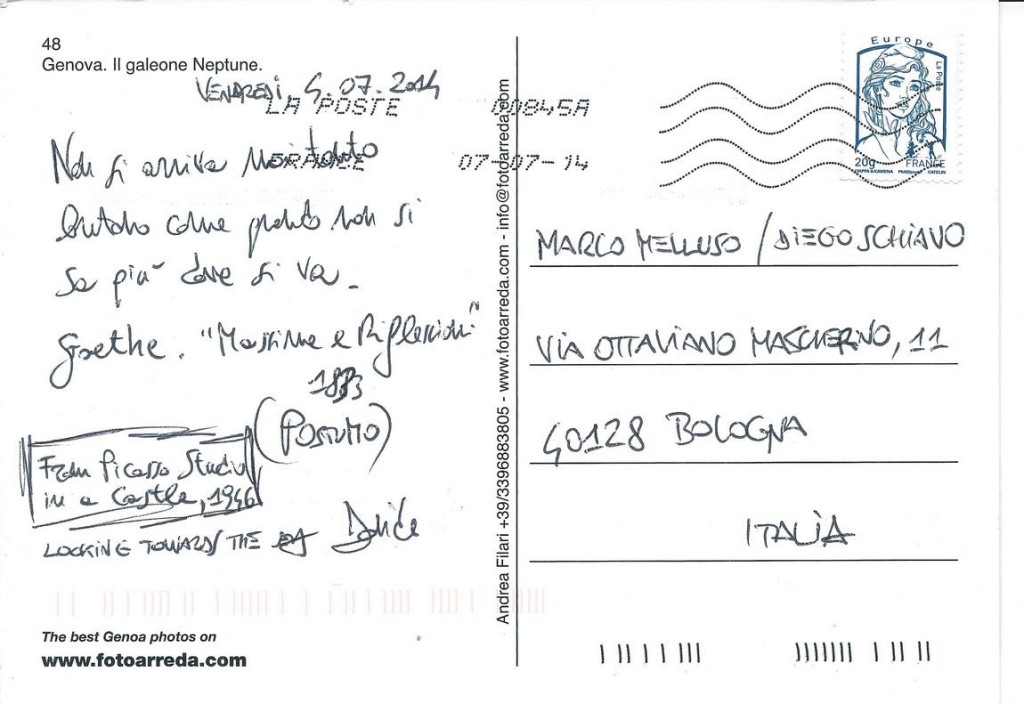 48
Genova. Il galeone Neptune.
VENERDI, 4.07.2014
LA POSTE 00845A
FRANCE 07-07-14
Non si arriva mai tanto
lontano come quando non si
sa più dove si va.
Goethe. "Massime e Riflessioni"
1833
(POSTUMO)
From Picasso Studio
in a Castle, 1946
LOOKING TOWARDS THE
Andrea Filari +39/3396883805 - www.fotoarreda.com - info@fotoarreda.com
Europe
La Poste
20g
FRANCE
MARCO MELLUSO / DIEGO SCHIAVO
VIA OTTAVIANO MASCHERINO, 11
40128 BOLOGNA
ITALIA
The best Genoa photos on
www.fotoarreda.com